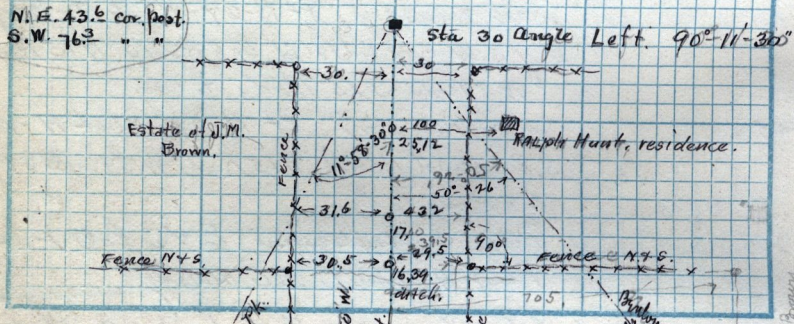 N. E. 43.6 cor. post.
S. W. 76.3 " "
Sta 30 Angle Left. 90°-11'-30"
30. 30
Estate of J.M.
Brown.
Fence
11°-58'-30"
100
25,12
Ralph Hunt. residence.
50°- 26
31.6 43.2
17,10
39.5
90°
Fence N+S. 30.5 29.5 Fence N+S.
16,39.
ditch.
105.